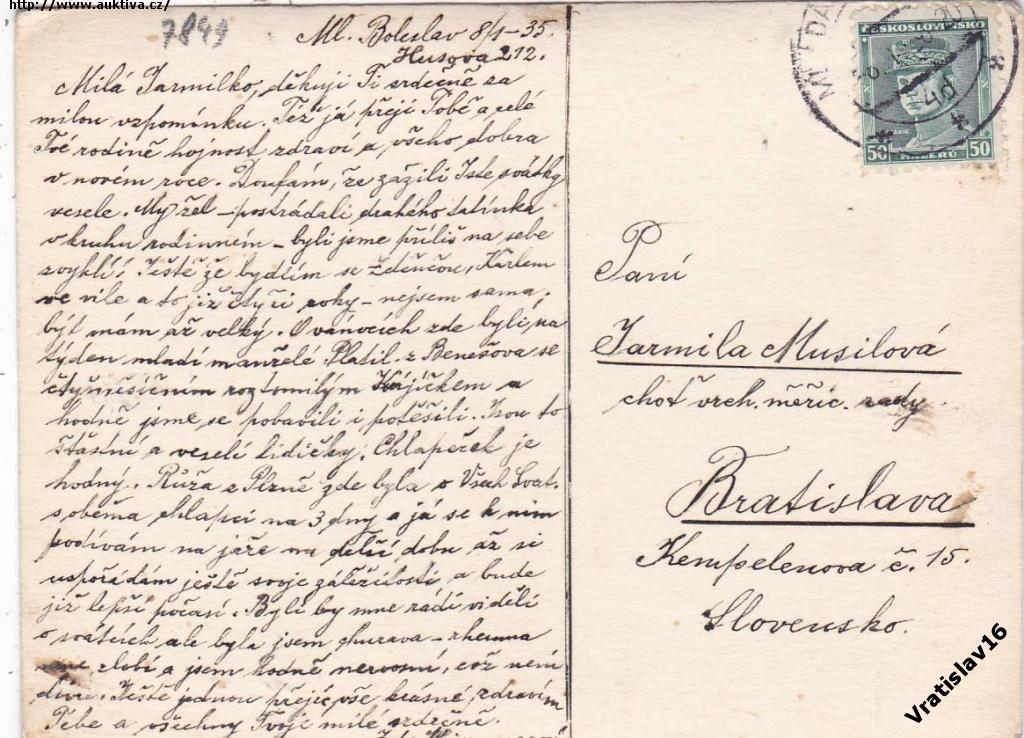 http://www.auktiva.cz/
7849
Ml. Boleslav 8/1-35.
Husova 212.
Milá Jarmilko, děkuji Ti srdečně za
milou vzpomínku. Též já přeji Tobě a celé
Tvé rodině hojnost zdraví a všeho dobra
v novém roce. Doufám, že zažili jste svátky
vesele. My žel - postrádali drahého tatínka
v kruhu rodinném - byli jsme příliš na sebe
zvyklí! Ještě že bydlím se Zdenčou, Karlem
ve vile a to již čtyři roky - nejsem sama,
být mám až velký. O vánocích zde byli na
týden mladí manželé Platil. z Benešova se
čtyřměsíčním roztomilým Jijíčkem a
hodně jsme se pobavili i potěšili. Jsou to
šťastní a veselí lidičky. Chlapeček je
hodný. Růža z Plzně zde byla o Všech Svat.
s oběma chlapci na 3 dny a já se k nim
podívám na jaře na delší dobu až si
uspořádám ještě svoje záležitosti a bude
již lepší počasí. Byli by mne rádi viděli
o svátcích ale byla jsem churava - rheuma
mne zlobí a jsem hodně nervosní, což není
divu. Ještě jednou přejíc vše krásné, zdravím
Tebe a všechny Tvoje milé srdečně.
ČESKOSLOVENSKO
50 HALÉŘŮ 50
Paní
Jarmila Musilová
choť vrch. měřic. rady.
Bratislava
Kempelenova č. 15.
Slovensko.
Vratislav16